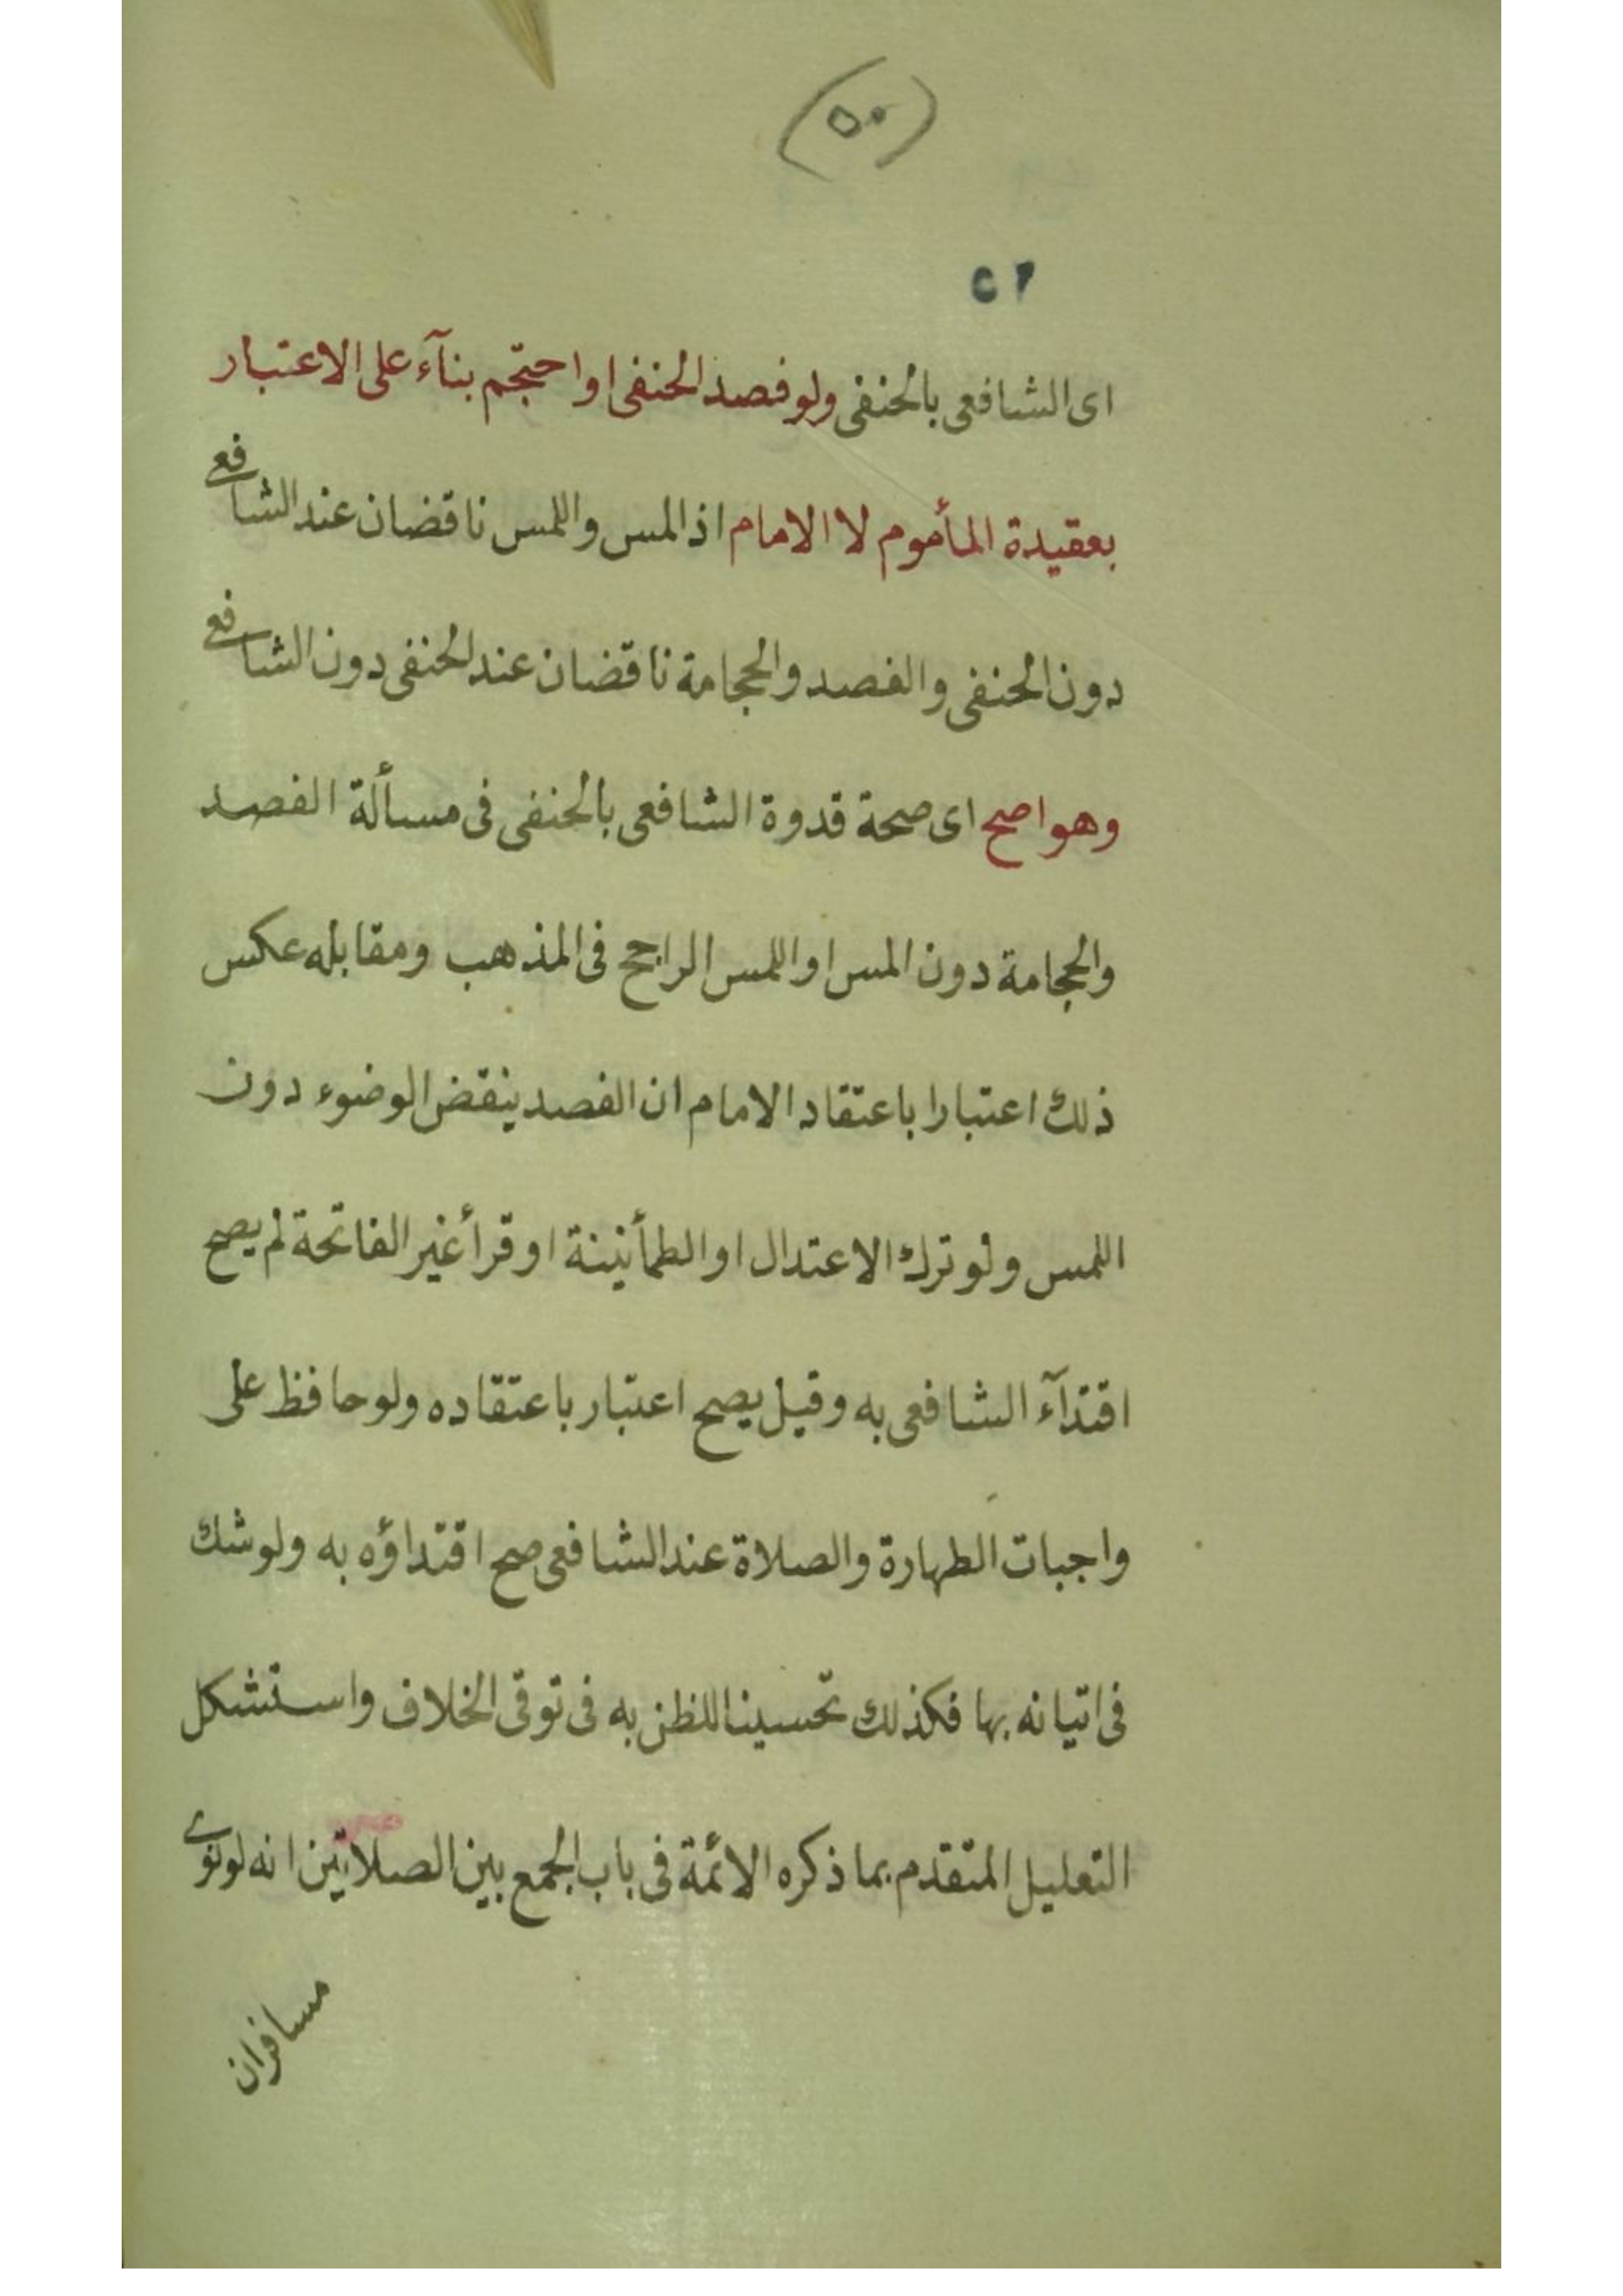 (٥٠)
اى الشافعى بالحنفى ولو فصد الحنفى او احتجم بنآء على الاعتبار
بعقيدة المأموم لا الامام اذ المس واللمس ناقضان عند الشافعى
دون الحنفى والفصد والحجامة ناقضان عند الحنفى دون الشافعى
وهو اصح اى صحة قدوة الشافعى بالحنفى فى مسألة الفصد
والحجامة دون المس او اللمس الراجح فى المذهب ومقابله عكس
ذلك اعتبارا باعتقاد الامام ان الفصد ينقض الوضوء دون
اللمس ولو ترك الاعتدال او الطمأنينة او قرأ غير الفاتحة لم يصح
اقتدآء الشافعى به وقيل يصح اعتبار باعتقاده ولو حافظ على
واجبات الطهارة والصلاة عند الشافعى صح اقتداؤه به ولو شك
فى اتيانه بها فكذلك تحسينا للظن به فى توقى الخلاف واستشكل
التعليل المتقدم بما ذكره الائمة فى باب الجمع بين الصلاتين انه لو نوى
مسافران